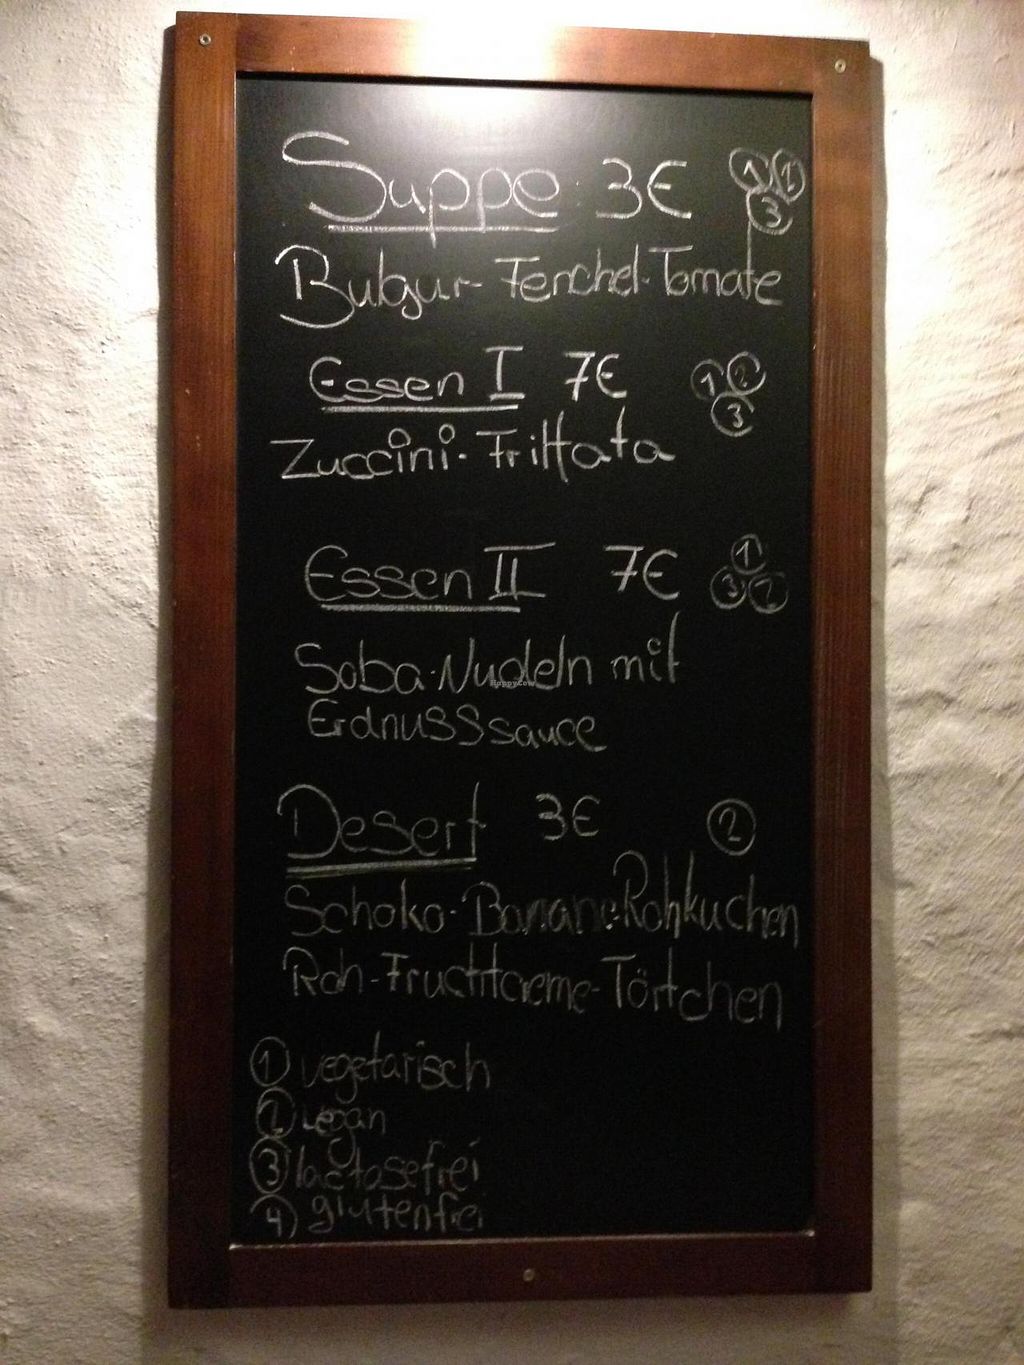 Suppe 3€ ① ② ③
Bulgur-Fenchel-Tomate
Essen I 7€ ① ② ③
Zuccini-Frittata
Essen II 7€ ① ③ ②
Soba-Nudeln mit
Erdnusssauce
HappyCow
Desert 3€ ②
Schoko-Banane-Rohkuchen
Roh-Fruchtcreme-Törtchen
① vegetarisch
② vegan
③ lactosefrei
④ glutenfrei